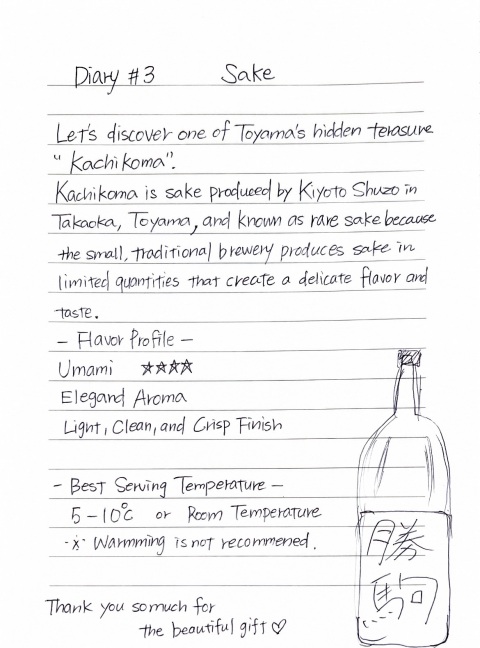 Diary #3 Sake
Let's discover one of Toyama's hidden terasure
"Kachikoma".
Kachikoma is sake produced by Kiyoto Shuzo in
Takaoka, Toyama, and known as rare sake because
the small, traditional brewery produces sake in
limited quantities that create a delicate flavor and
taste.
- Flavor Profile -
Umami ☆☆☆☆
Elegand Aroma
Light, Clean, and Crisp Finish
- Best Serving Temperature -
5-10°C or Room Temperature
※ Warmming is not recommened.
勝
駒
Thank you so much for
the beautiful gift ♡